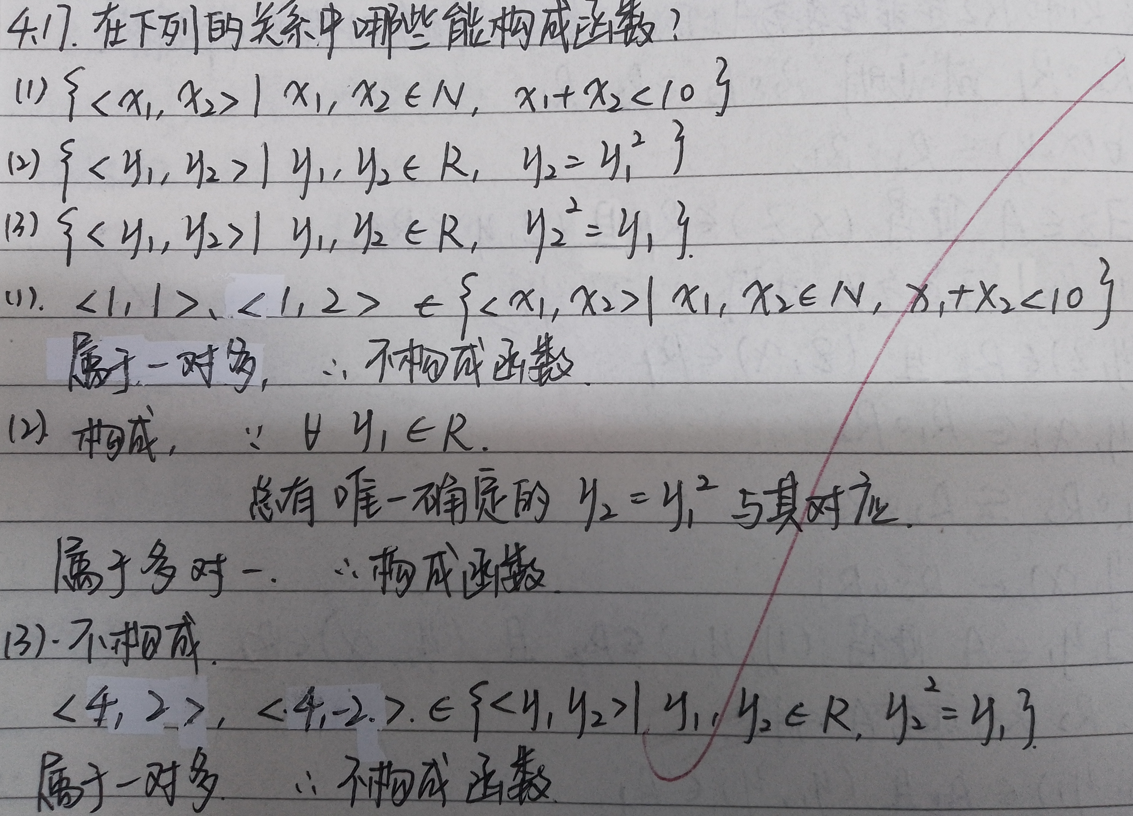 4.17. 在下列的关系中哪些能构成函数?
(1) {<x₁, x₂> | x₁, x₂ ∈ N, x₁+x₂<10}
(2) {<y₁, y₂> | y₁, y₂ ∈ R, y₂=y₁²}
(3) {<y₁, y₂> | y₁, y₂ ∈ R, y₂²=y₁}.
(1). <1,1>、<1,2> ∈ {<x₁, x₂> | x₁, x₂∈N, x₁+x₂<10}
属于一对多, ∴ 不构成函数.
(2) 构成, ∵ ∀ y₁∈R.
总有唯一确定的 y₂=y₁² 与其对应.
属于多对一. ∴构成函数.
(3). 不构成.
<4, 2>, <4,-2>. ∈ {<y₁, y₂> | y₁, y₂ ∈ R, y₂²=y₁}.
属于一对多. ∴ 不构成函数.